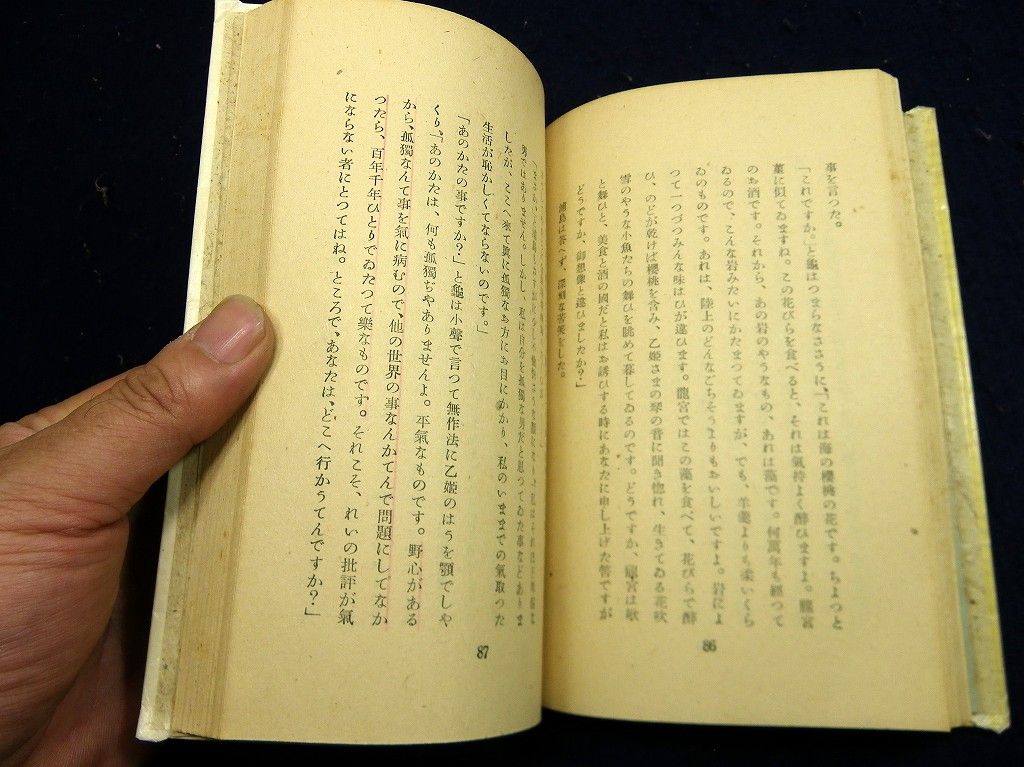 事を言つた。
「これですか。」と龜はつまらなささうに、「これは海の櫻桃の花です。ちよつと
菫に似てゐますね。この花びらを食べると、それは氣持よく醉ひますよ。龍宮
のお酒です。それから、あの岩のやうなもの、あれは藻です。何萬年も經つて
ゐるので、こんな岩みたいにかたまつてゐますが、でも、羊羹よりも柔いくら
ゐのものです。あれは、陸上のどんなごちそうよりもおいしいですよ。岩によ
つて一つづつみんな味はひが違ひます。龍宮ではこの藻を食べて、花びらで醉
ひ、のどが乾けば櫻桃を含み、乙姫さまの琴の音に聞き惚れ、生きてゐる花吹
雪のやうな小魚たちの舞ひを眺めて暮してゐるのです。どうですか、龍宮は歌
と舞ひと、美食と酒の國だと私はお誘ひする時にあなたに申し上げた筈ですが
どうですか、御想像と違ひましたか?」
浦島は答へず、深刻な苦笑をした。
86
男ではありません。しかし、私は自分を孤獨な男だと思つてゐた事などありま
したが、ここへ來て眞に孤獨なお方にお目にかかり、私のいままでの氣取つた
生活が恥かしくてならないのです。」
「あのかたの事ですか?」と龜は小聲で言つて無作法に乙姫のはうを顎でしや
くり、「あのかたは、何も孤獨ぢやありませんよ。平氣なものです。野心がある
から、孤獨なんて事を氣に病むので、他の世界の事なんかてんで問題にしてなか
つたら、百年千年ひとりでゐたつて樂なものです。それこそ、れいの批評が氣
にならない者にとつてはね。ところで、あなたは、どこへ行かうてんですか?」
87